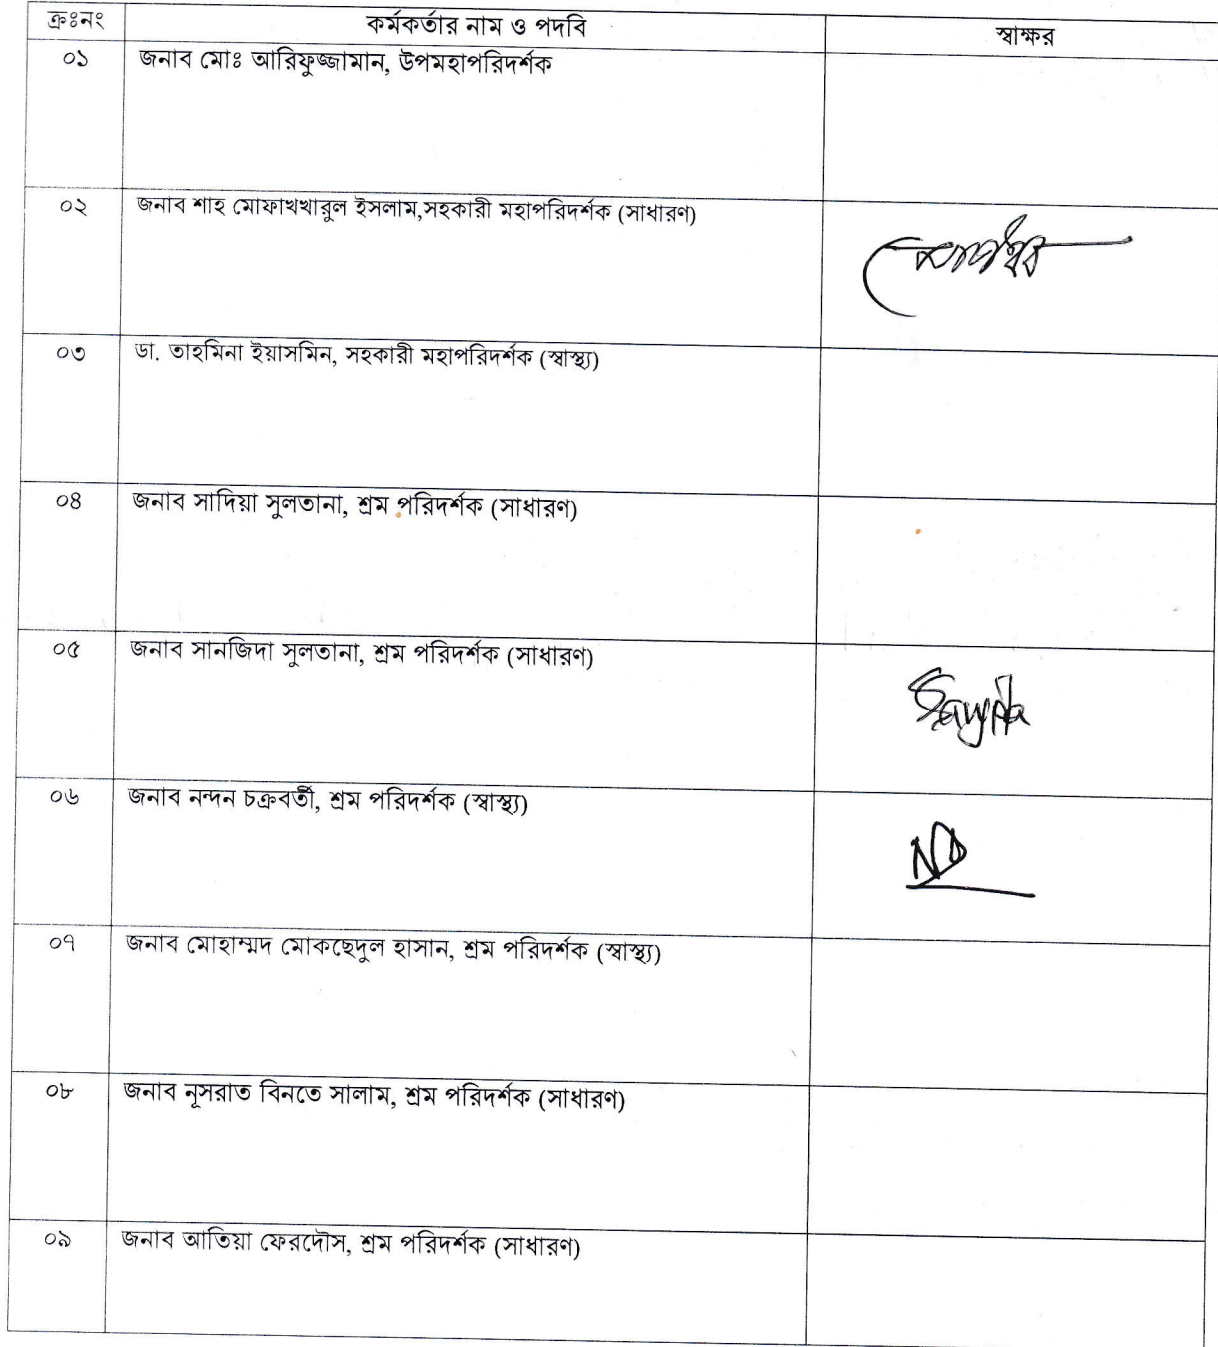 ক্রঃনং কর্মকর্তার নাম ও পদবি স্বাক্ষর
০১ জনাব মোঃ আরিফুজ্জামান, উপমহাপরিদর্শক
০২ জনাব শাহ মোফাখখারুল ইসলাম,সহকারী মহাপরিদর্শক (সাধারণ)
০৩ ডা. তাহমিনা ইয়াসমিন, সহকারী মহাপরিদর্শক (স্বাস্থ্য)
০৪ জনাব সাদিয়া সুলতানা, শ্রম পরিদর্শক (সাধারণ)
০৫ জনাব সানজিদা সুলতানা, শ্রম পরিদর্শক (সাধারণ)
০৬ জনাব নন্দন চক্রবর্তী, শ্রম পরিদর্শক (স্বাস্থ্য)
০৭ জনাব মোহাম্মদ মোকছেদুল হাসান, শ্রম পরিদর্শক (স্বাস্থ্য)
০৮ জনাব নূসরাত বিনতে সালাম, শ্রম পরিদর্শক (সাধারণ)
০৯ জনাব আতিয়া ফেরদৌস, শ্রম পরিদর্শক (সাধারণ)